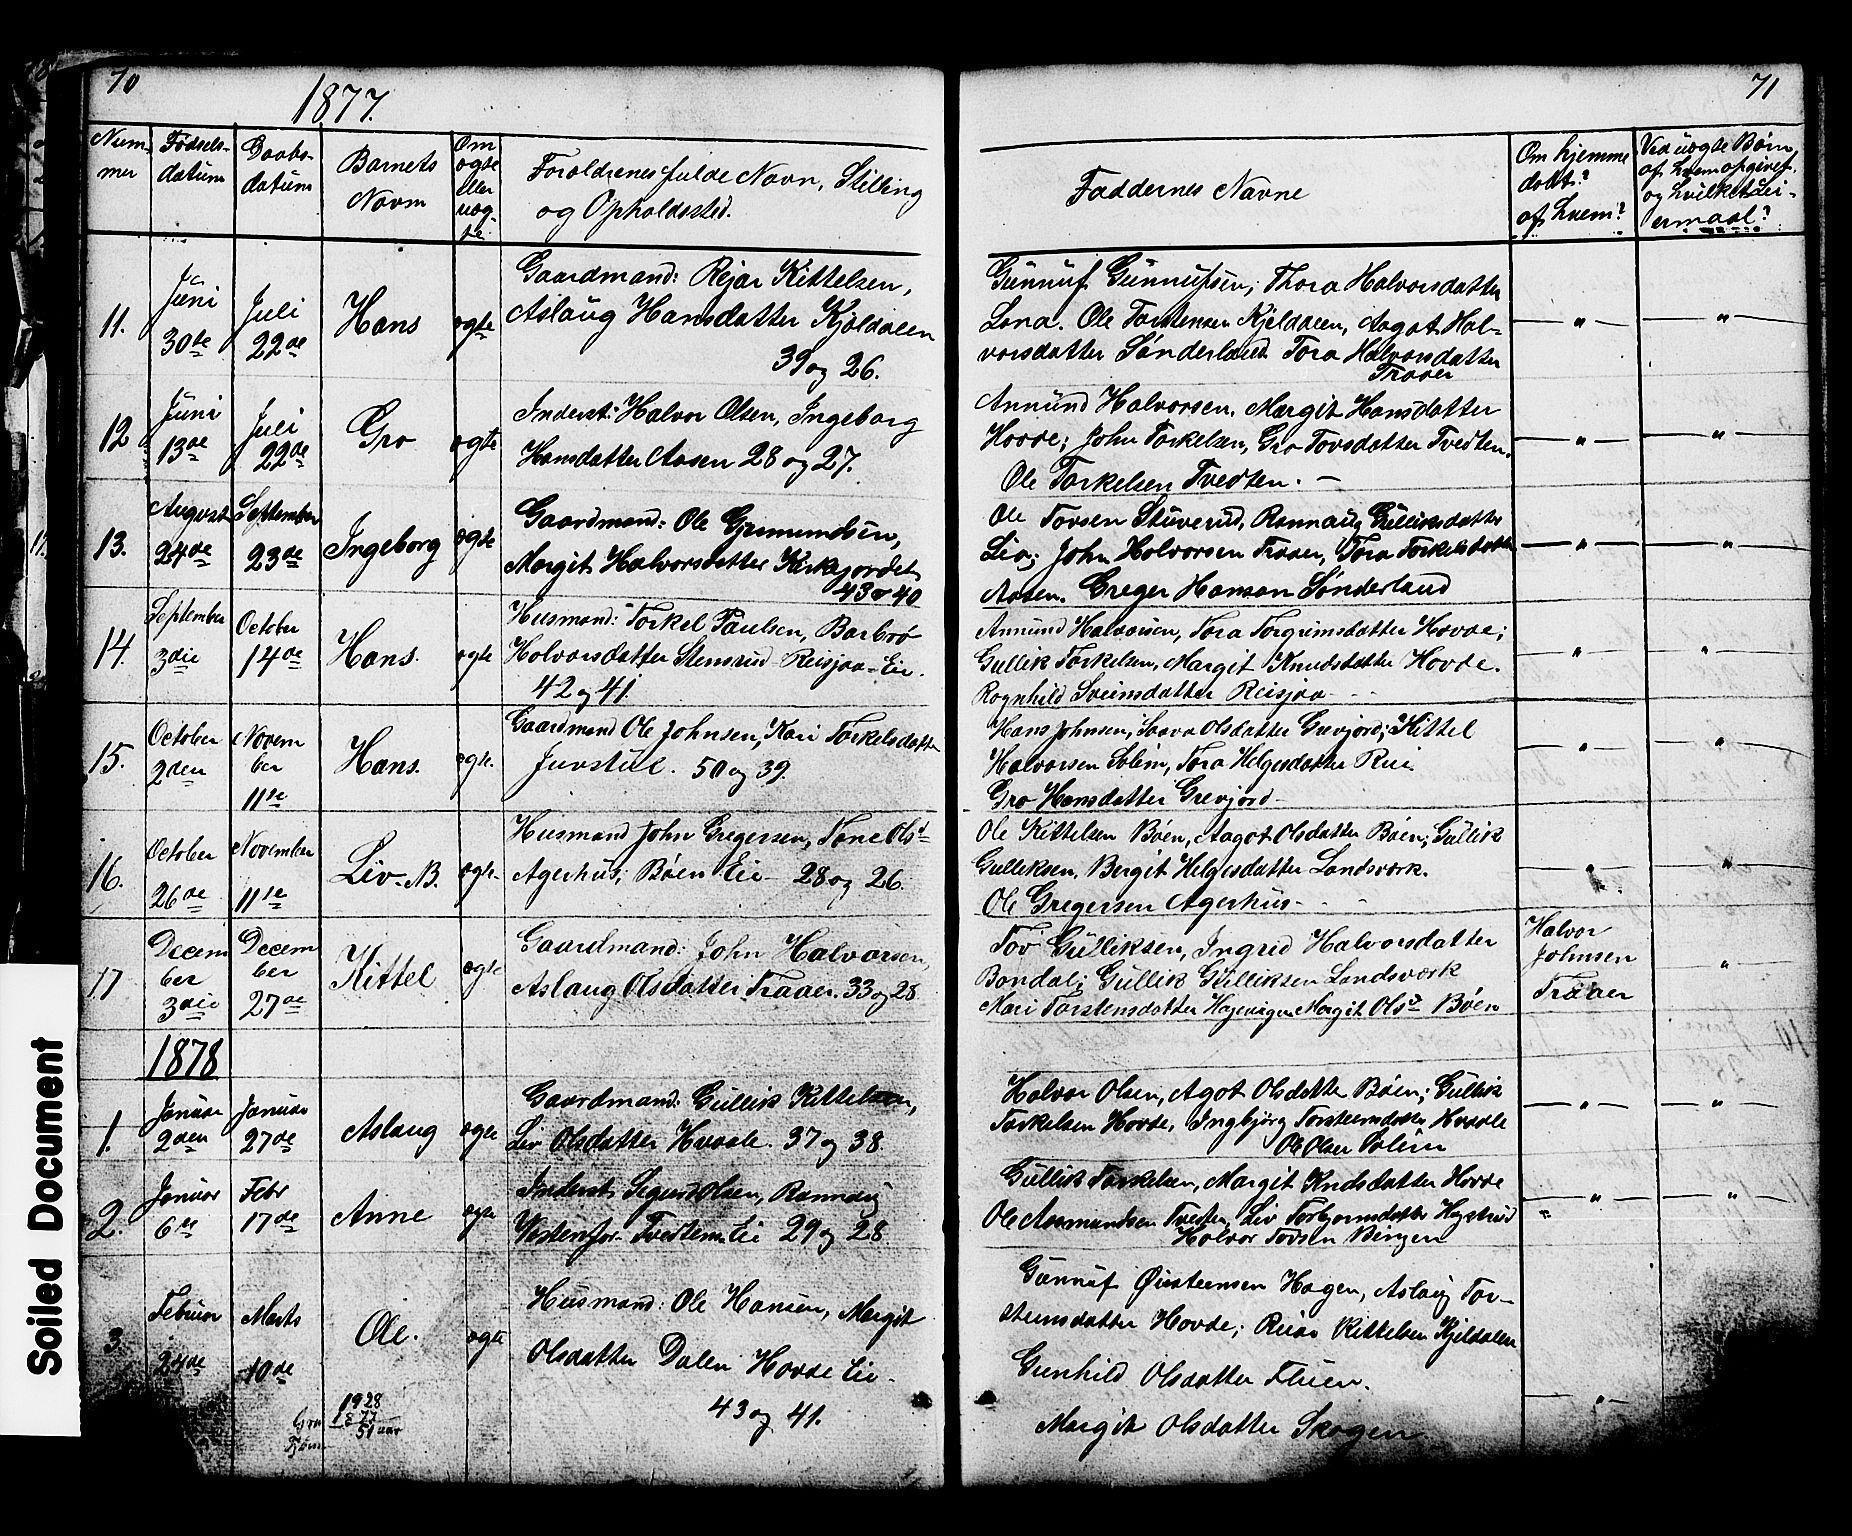 70
1877.
Num-
mer
Fødsels-
datum
Daabs-
datum
Barnets
Navn
Om
ægte
eller
uæg-
te
Forældrenes fulde Navn, Stilling
og Opholdssted.
11.
Juni
30de
Juli
22de
Hans
ægte
Gaardmand: Rejar Kittelsen,
Aslaug Hansdatter Kjøldalen
39 og 26.
12
Juni
13de
Juli
22de
Gro
ægte
Inderst: Halvor Olsen, Ingeborg
Hansdatter Aasen 28 og 27.
13.
August
24de
September
23de
Ingeborg
ægte
Gaardmand: Ole
Margit Halvorsdatter Kirkejordet
43 o 40
14.
September
3die
October
14de
Hans.
ægte
Husmand: Torkel Paulsen, Barbro
Halvorsdatter Stensrud Reisjaa-Eie.
42 og 41.
15.
October
2den
Novem
ber
11te
Hans.
ægte.
Gaardmand Ole Johnsen, Kari Torkelsdatter
Juvstul. 50 og 39.
16.
October
26de
November
11te
Liv. B.
ægte
Husmand John Gregersen, Tone Olsd
Agerhus, Bøen Eie 28 og 26.
17
Decem
ber
3die
Decem
ber
27de
Kittel
ægte
Gaardmand: John Halvorsen,
Aslaug Olsdatter Traaer. 33 og 28
1878
1.
Januar
2den
Januar
27de
Aslaug
ægte
Gaardmand: Gullik Kittelsen,
Liv Olsdatter Hvaale. 37 og 38.
2.
Januar
6te
Febr
17de
Anne
ægte
Inderst. Sigurd Olsen, Rannaug
Tvedten Eie 29 og 28
3
Februar
24de
Marts
10de
Ole.
ægte
Husmand: Ole Hansen, Margit
Olsdatter Dalen Hovde Eie.
43 og 41.
1928
Gro 1877
51 aar
71
Faddernes Navne
Om hjemme
døbt?
af hvem?
Ved uægte Børn,
af hvem opgivet
og hvilket Lei-
ermaal?
Gunnuf Gunnufsen, Thora Halvorsdatter
Lona. Ole Torstensen Kjeldalen, Aagot Hal-
vorsdatter Sønderland Tora Halvorsdatter
Traaer
- " -
"
Annund Halvorsen, Margit Hansdatter
Hovde; John Torkelsen, Gro Tovsdatter Tvedten.
Ole Torkelsen Tvedten. -
- " -
"
Ole Tovsen Stuverud, Rannaug Gulliksdatter
Lia; John Halvorsen Traaer, Tora Torkelsdatter
Aasen. Greger Hansen Sønderland
- " -
"
Annund Halvorsen, Tora Torgrimsdatter Hovde;
Gullik Torkelsen, Margit Knudsdatter Hovde.
Ragnhild Sveinsdatter Reisjaa
"
"
Hans Johnsen, Saava Olsdatter Grevjord; Kittel
Halvorsen Solem, Tora Helgesdatter Rui
Gro Hansdatter Grevjord
"
"
Ole Kittelsen Bøen, Aagot Olsdatter Bøen; Gullik
Gulliksen, Bergit Helgesdatter Landsværk.
Ole Gregersen Agerhus
"
"
Tov Gulliksen, Ingrid Halvorsdatter
Bondal; Gullik Gulliksen Landsværk
Mari Torstensdatter Margit Olsd Bøen
Halvor
Johnsen
Traaer
"
Halvor Olsen, Agot Olsdatter Bøen; Gullik
Torkelsen Hovde, Ingbjørg Torsteinsdatter Hvaale
Ole Olsen Solem
"
"
Gullik Torkelsen, Margit Kndsdatter Hovde
Ole Aasmundsen Tvedten, Liv Torbjørnsdatter
Halvor Tovsen Bingen
"
"
Gunnuf Øisteensen Hagen, Aslaug Tor-
steinsdatter Hovde; Reiar Kittelsen Kjeldalen
Gunhild Olsdatter Fluen.
Margit Olsdatter Skogen
"
Soiled Document